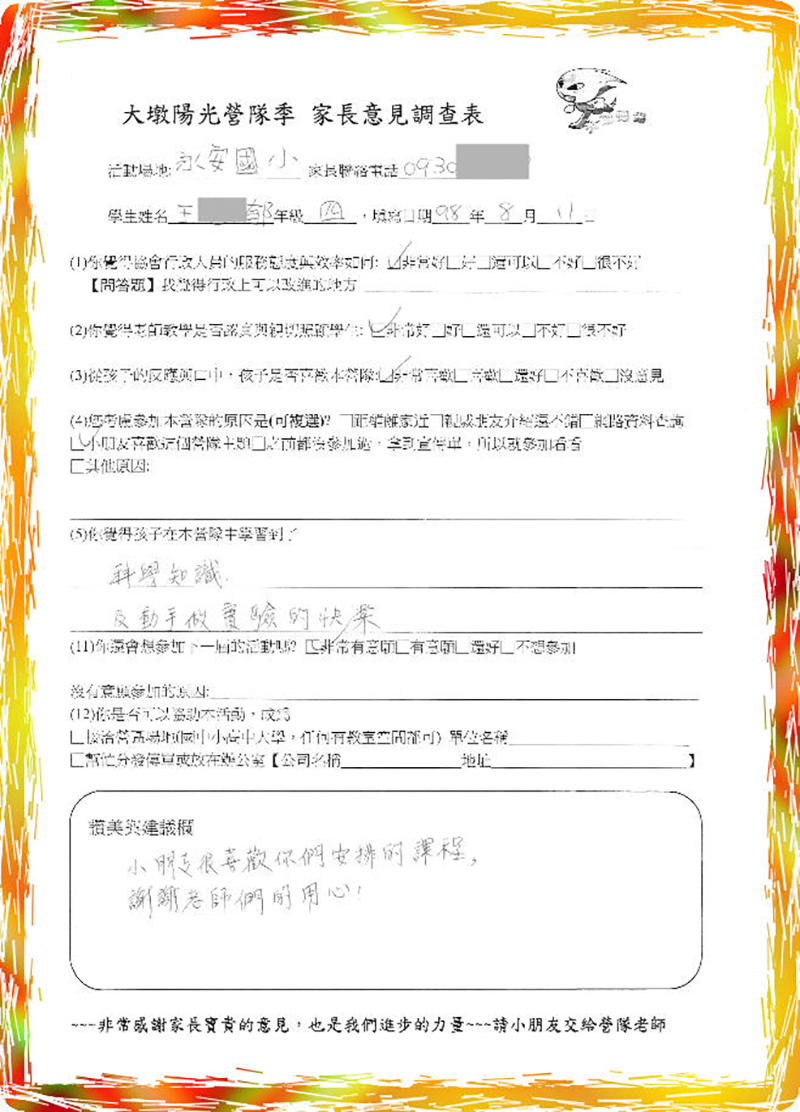 大墩陽光營隊季 家長意見調查表
活動場地:永安國小 家長聯絡電話0930
學生姓名王 郁年級四,填寫日期98年8月11日
(1)你覺得協會行政人員的服務態度與效率如何:☑非常好□好□還可以□不好□很不好
【問答題】我覺得行政上可以改進的地方
(2)你覺得老師教學是否認真與親切照顧學生:☑非常好□好□還可以□不好□很不好
(3)從孩子的反應與口中,孩子是否喜歡本營隊:☑非常喜歡□喜歡□還好□不喜歡□沒意見
(4)您考慮參加本營隊的原因是(可複選)? □距離離家近□親戚朋友介紹還不錯□網路資料查詢
☑小朋友喜歡這個營隊主題□之前都沒參加過,拿到宣傳單,所以就參加看看
□其他原因:
(5)你覺得孩子在本營隊中學習到了
科學知識.
及動手做實驗的快樂
(11)你還會想參加下一屆的活動嗎? ☑非常有意願□有意願□還好□不想參加
沒有意願參加的原因:
(12)你是否可以協助本活動,成為
□接洽營區場地(國中小高中大學,任何有教室空間都可) 單位名稱
□幫忙分發傳單或放在辦公室【公司名稱 地址 】
讚美與建議欄
小朋友很喜歡你們安排的課程,
謝謝老師們的用心!
~~~非常感謝家長寶貴的意見,也是我們進步的力量~~~請小朋友交給營隊老師